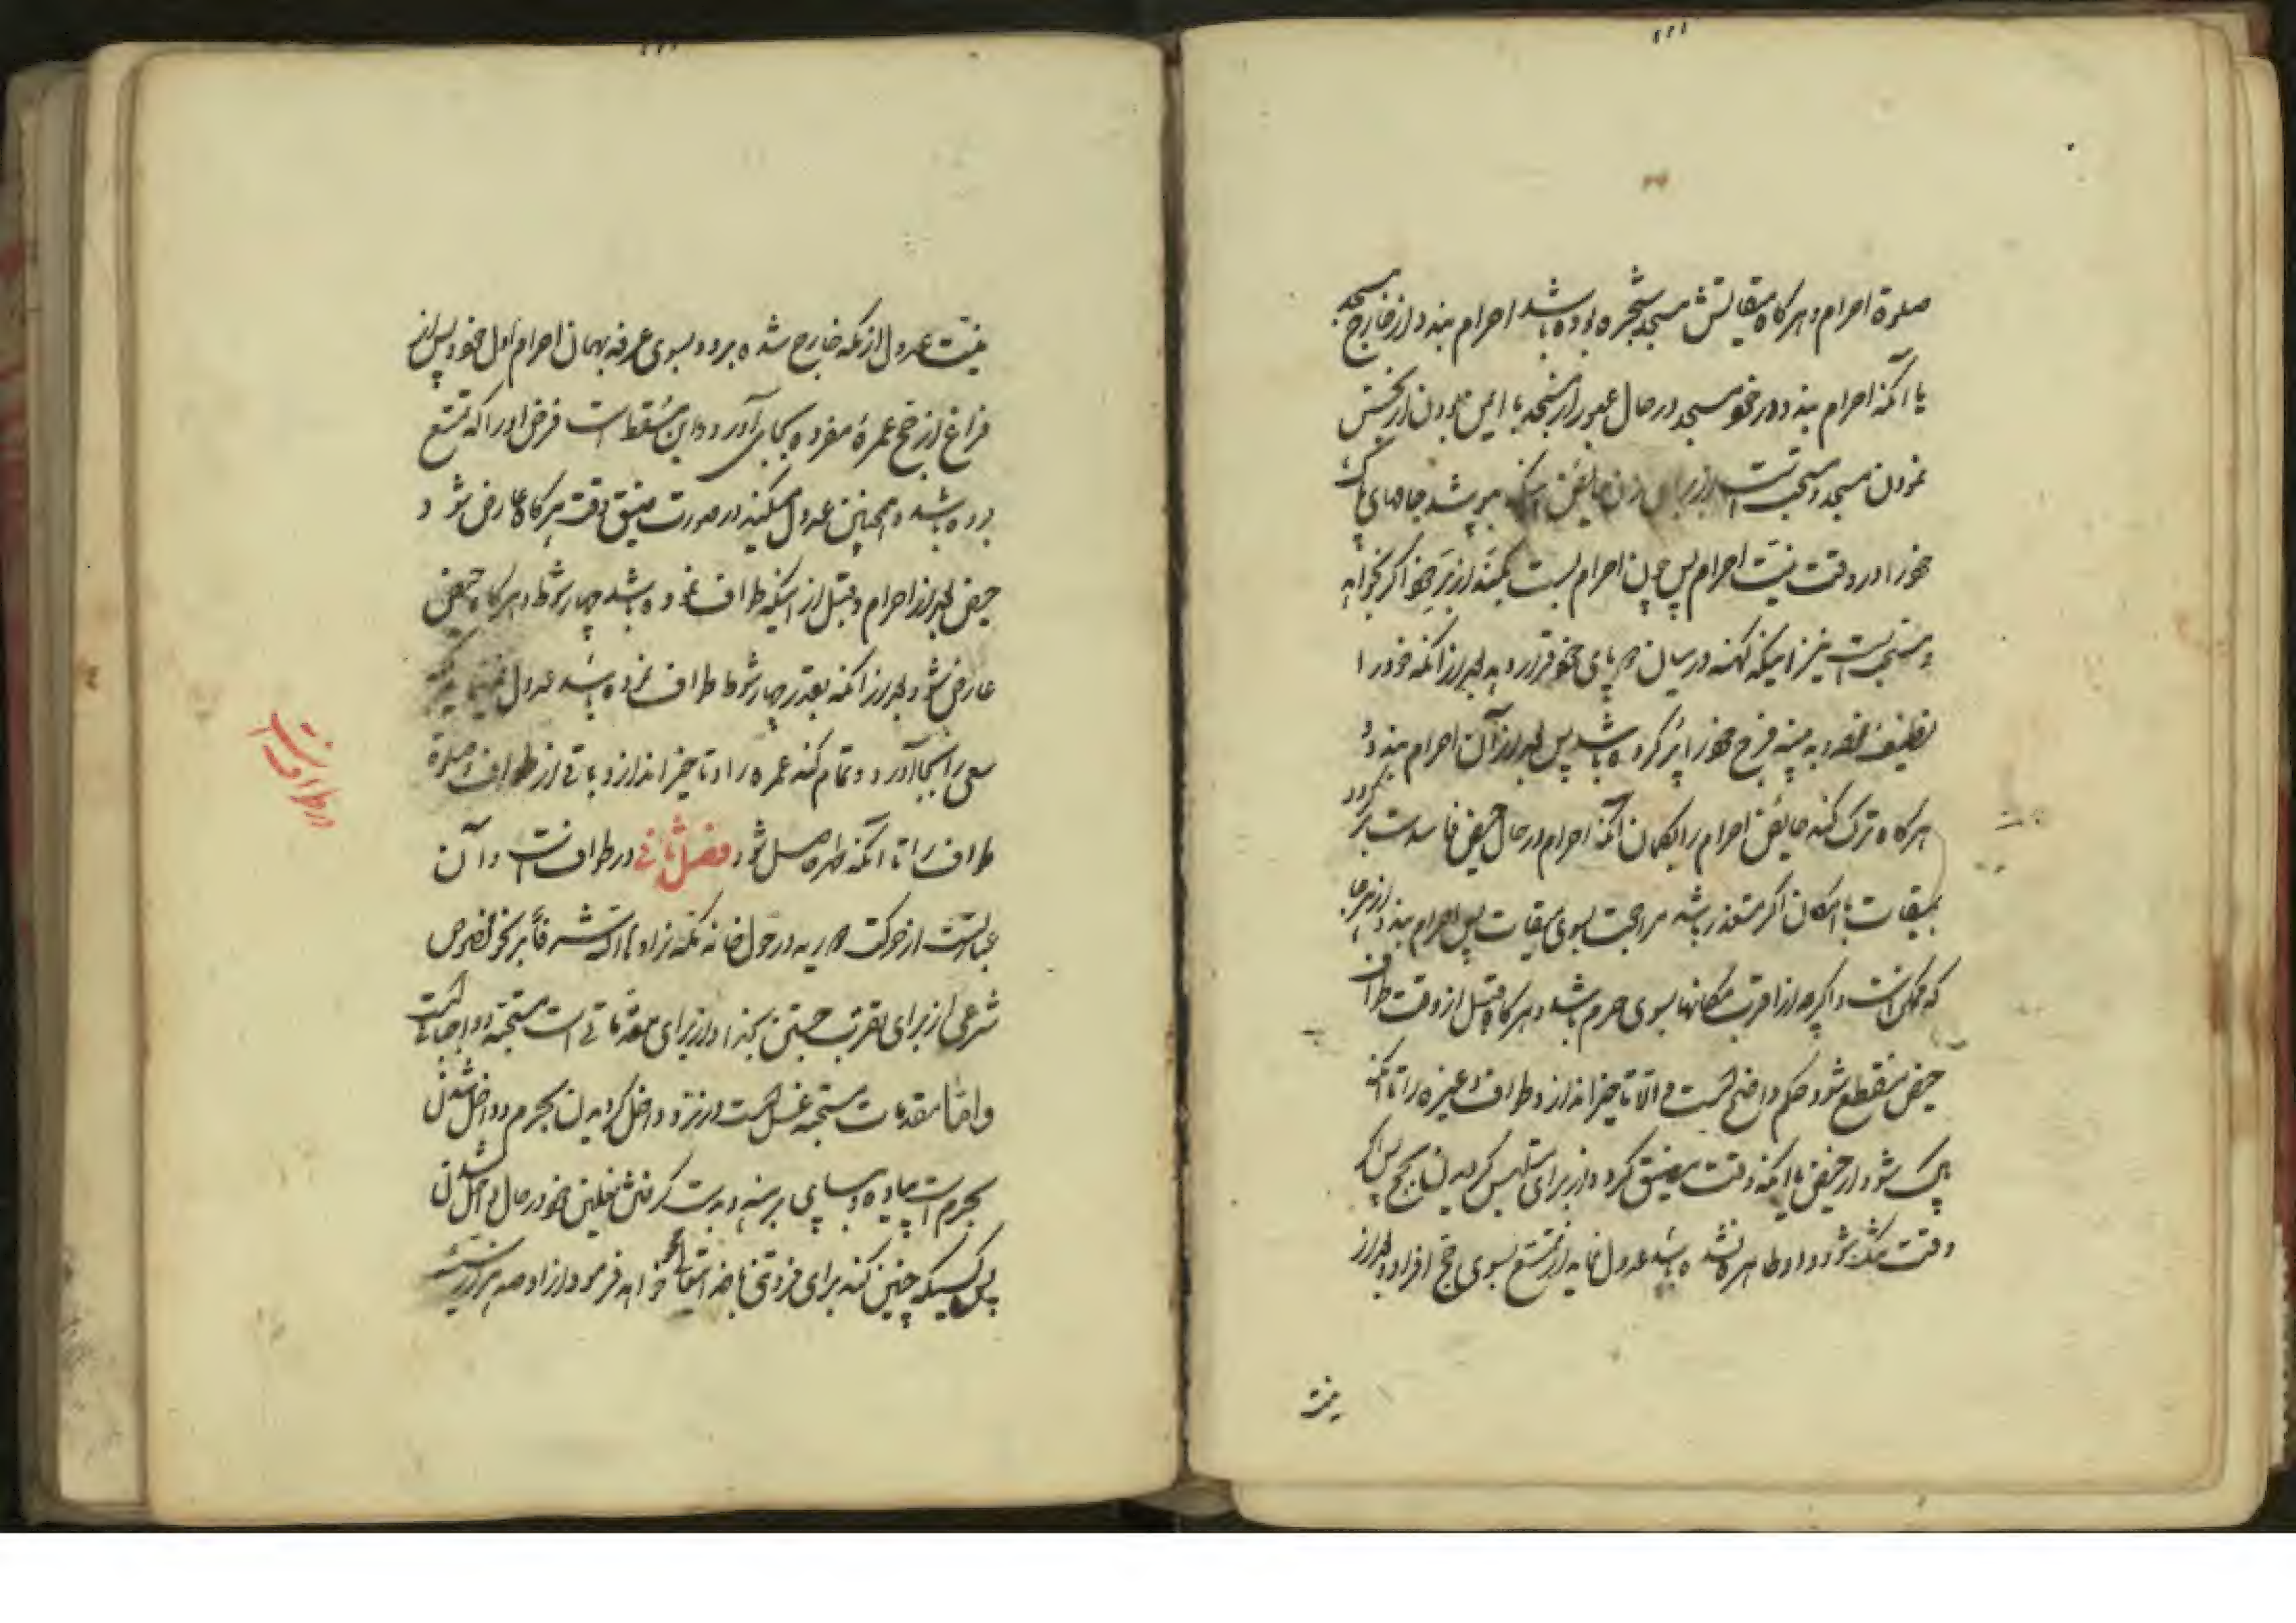 صلوة احرام و هر کاه میقاتش مسجد شجره بوده باشد احرام بندد از خارج مسجد
یا آنکه احرام بندد در خود مسجد در حال عبور از مسجد با ایمن بودن از نجس
نمودن مسجد و مستحب است از برای زن حایض آنکه بپوشد جامهای پاک
خود را در وقت نیت احرام پس چون احرام بست بکند از بر خود اکر بخواهد
و مستحب است نیز اینکه کهنه در میان دو پای خود قرار دهد بعد از آنکه خود را
تنظیف نموده به پنبه فرج خود را پر کرده باشد پس بعد از آن احرام بندد و
هر کاه ترک کند حایض احرام را بکمان آنکه احرام در حال حیض فاسد است بر کردد
بمیقات با امکان اکر متعذر باشد مراجعت بسوی میقات پس احرام بندد از هر جا
که ممکن است و اکرچه از اقرب مکانها بسوی حرم باشد و هر کاه قبل از وقت طواف
حیض منقطع شود حکم واضح است و الا تاخیر اندازد طواف و غیره را تا آنکه
پاک شود از حیض یا آنکه وقت مضیق کردد از برای متلبس کردیدن بحج پس اکر
وقت تنک شود و او طاهر نشده باشد عدول نماید از تمتع بسوی حج افراد و بعد از
نیت
نیت عدول از مکه خارج شده برود بسوی عرفه بهمان احرام اول خود و پس از
فراغ از حج عمرهٔ مفرده بجای آورد و این مسقط است فرض او را که تمتع
بوده باشد و همچنین عدول میکند در صورت ضیق وقت هر کاه عارض شود
حیض بعد از احرام و قبل از اینکه طواف نموده باشد چهار شوط و هر کاه حیض
عارض شود بعد از آنکه بقدر چهار شوط طواف نموده باشد عدول
سعی را بجا آورد و تمام کند عمره را و تاخیر اندازد باقی از طواف و صلوة
طواف را تا آنکه طهر حاصل شود فصل ثانی در طواف است و آن
عبارتست از حرکت دوریه در حول خانه مکه زاد الله شرفا بر نحو مخصوص
شرعی از برای تقرب جستن بخدا و از برای مقدماتی است مستحبه و واجباتی است
و اما مقدمات مستحبه غسل است در نزد داخل کردیدن بحرم و داخل شدن
بحرم است پیاده و با پای برهنه و بدست کرفتن نعلین خود در حال داخل شدن
پس کسیکه چنین کند برای فروتنی خدایتعالی محو خواهد فرمود از او صد هزار سیئه
در طواف است